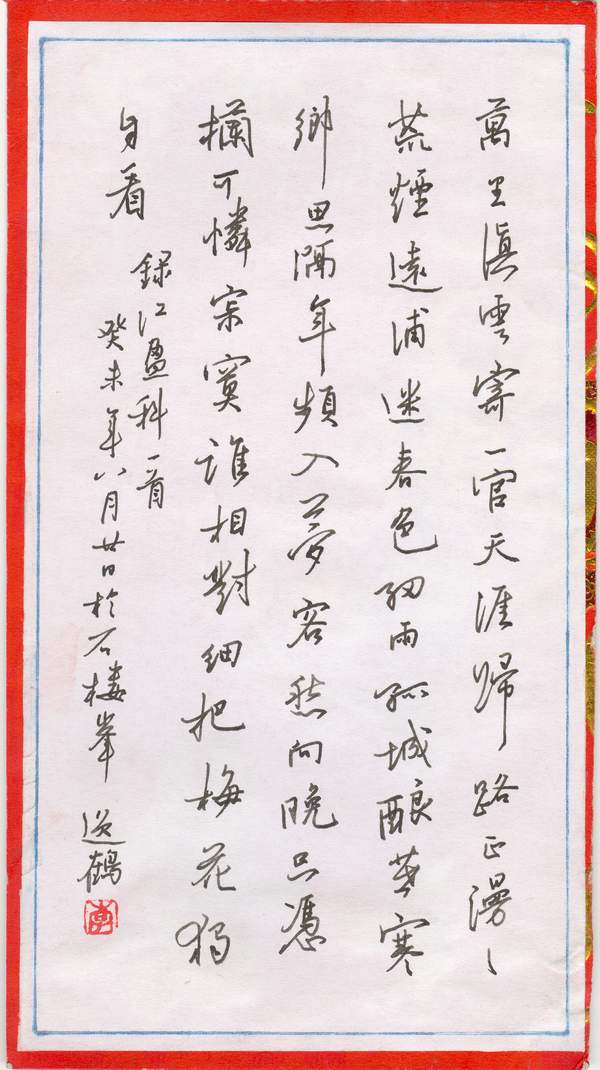 萬里滇雲寄一官天涯歸路正漫〻
荒煙遠浦迷春色細雨孤城酿暮寒
鄉思隔年頻入夢客愁向晚只憑
欄可憐寂寞誰相對細把梅花独
自看
録江盈科一首
癸未年八月廿日於石楼峯
鶴